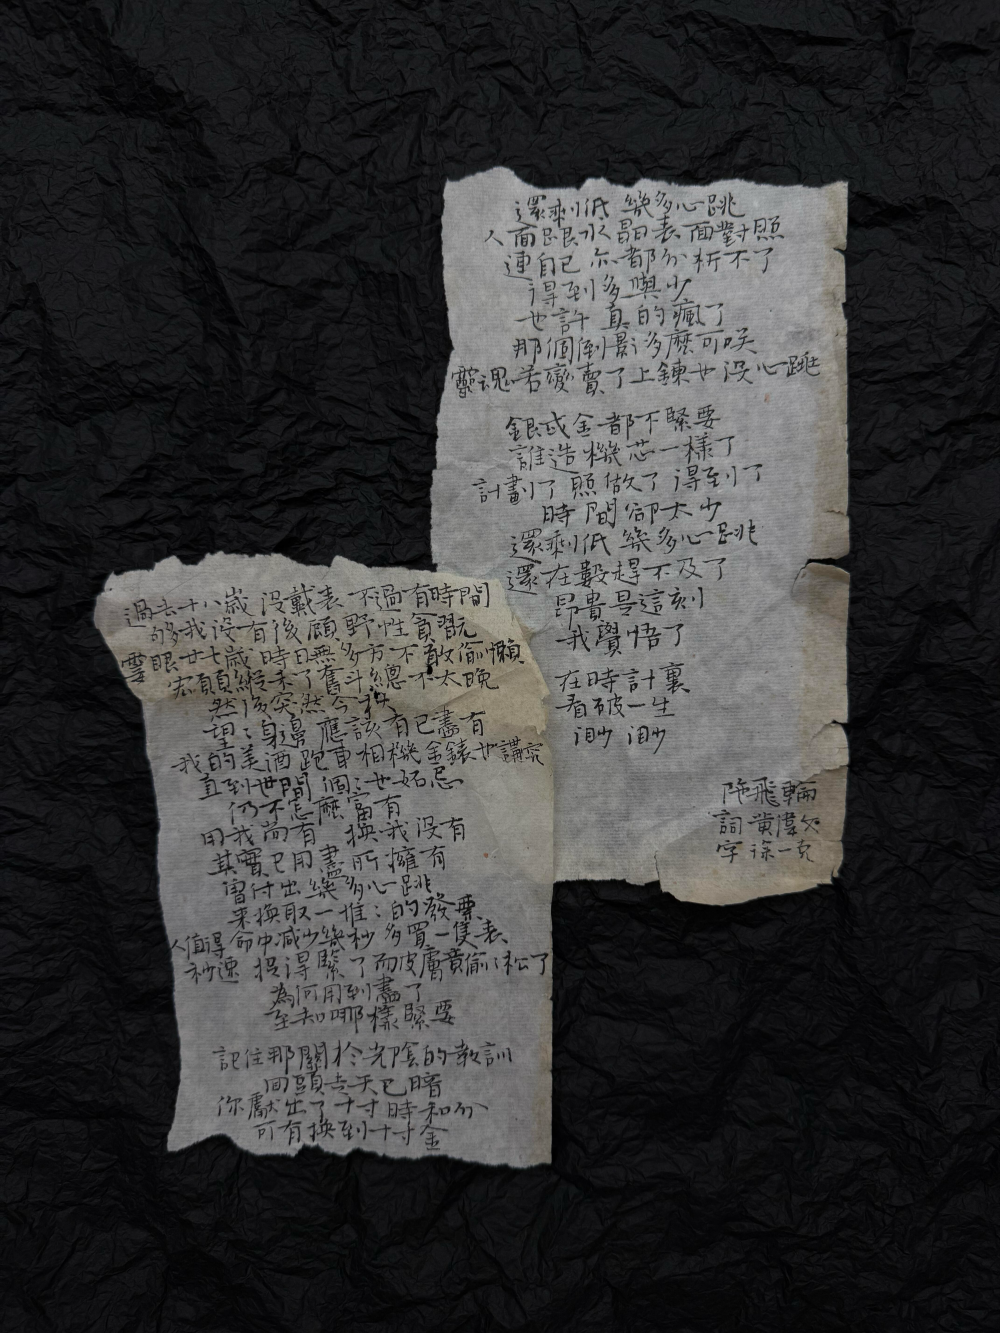 過去十八歲沒戴表 不過有時間
夠我沒有後顧 野性貪玩
霎眼廿七歲時日無多方不敢偷懶
宏願縱未了 奮斗總不太晚
然後突然今秋
望望身邊應該有已盡有
我的美酒跑車相機金錶也講究
直到世間個個也妬忌
仍不怎麽富有
用我尚有換我沒有
其實已用盡所擁有
曾付出幾多心跳
來換取一堆堆的發票
人值得命中减少幾秒多買一隻表
秒速捉得緊了而皮膚竟偷偷松了
為何用到盡了
至知哪樣緊要
記住那關於光陰的教訓
回頭走天已暗
你獻出了十寸時和分
可有換到十寸金
還剩低幾多心跳
人面跟水晶表面對照
連自己亦都分析不了
得到多與少
也許真的瘋了
那個倒影多麽可咲
靈魂若變賣了上鍊也沒心跳
銀或金都不緊要
誰造機芯一樣了
計劃了照做了得到了
時間卻太少
還剩低幾多心跳
還在數趕不及了
昂貴是這刻
我覺悟了
在時計裏
看破一生
渺渺
陀飛輪
詞 黄偉文
字 徐一克